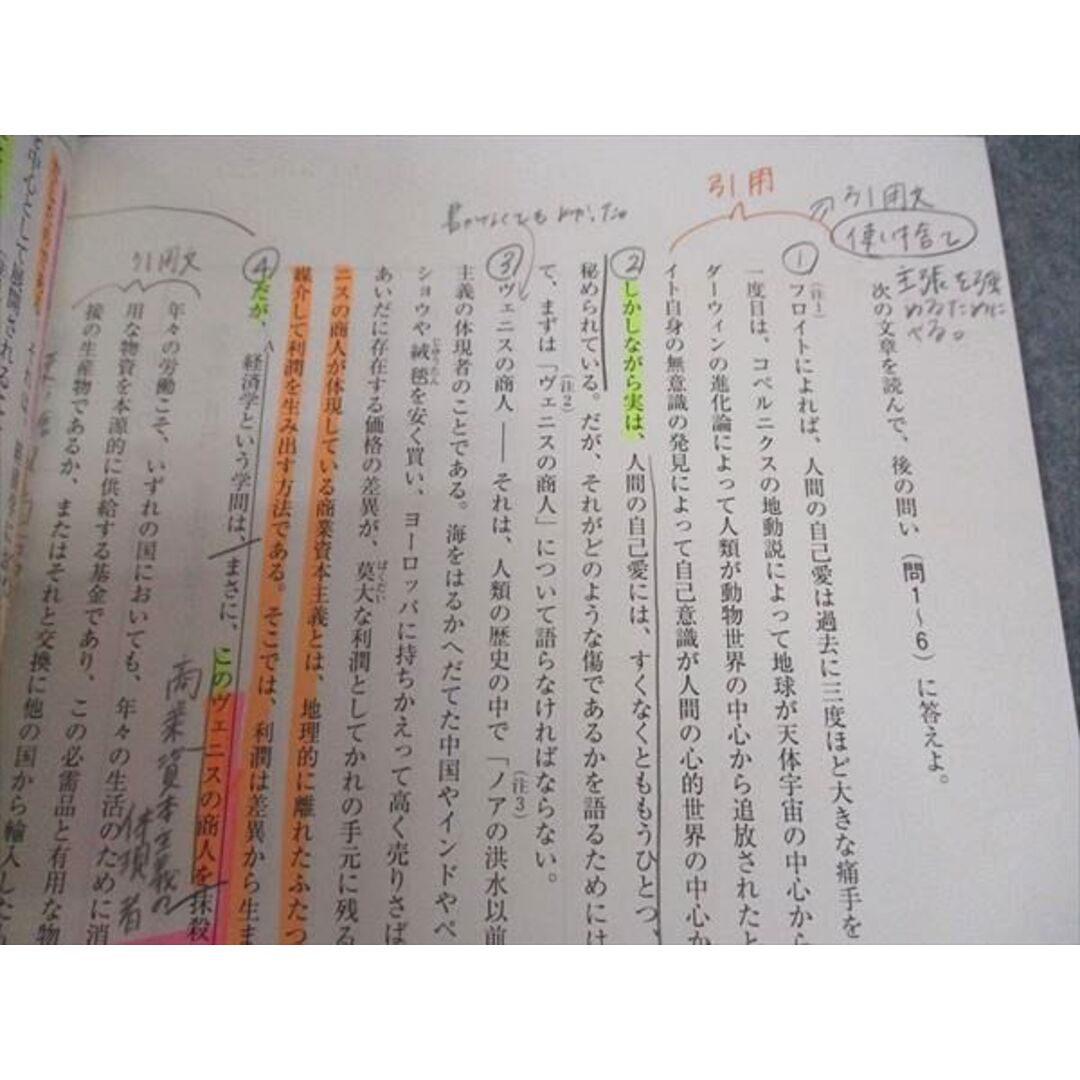 引用
引用文
使い捨て
主張を強
めるために
次の文章を読んで、後の問い(問1〜6)に答えよ。
①
(注1)
フロイトによれば、人間の自己愛は過去に三度ほど大きな痛手を
一度目は、コペルニクスの地動説によって地球が天体宇宙の中心から
ダーウィンの進化論によって人類が動物世界の中心から追放されたと
イト自身の無意識の発見によって自己意識が人間の心的世界の中心か
②
しかしながら実は、人間の自己愛には、すくなくとももうひとつ、
秘められている。だが、それがどのような傷であるかを語るためには
(注2)
て、まずは「ヴェニスの商人」について語らなければならない。
③
(注3)
ヴェニスの商人――それは、人類の歴史の中で「ノアの洪水以前
主義の体現者のことである。海をはるかへだてた中国やインドやペ
じゅうたん
ショウや絨毯を安く買い、ヨーロッパに持ちかえって高く売りさば
ばくだい
あいだに存在する価格の差異が、莫大な利潤としてかれの手元に残る
ニスの商人が体現している商業資本主義とは、地理的に離れたふたつ
媒介して利潤を生み出す方法である。そこでは、利潤は差異から生ま
④
A
だが、経済学という学問は、まさに、このヴェニスの商人を抹殺
商業資本主義の
体現者
引用文
年々の労働こそ、いずれの国においても、年々の生活のために消
用な物資を本源的に供給する基金であり、この必需品と有用な物
接の生産物であるか、またはそれと交換に他の国から輸入した